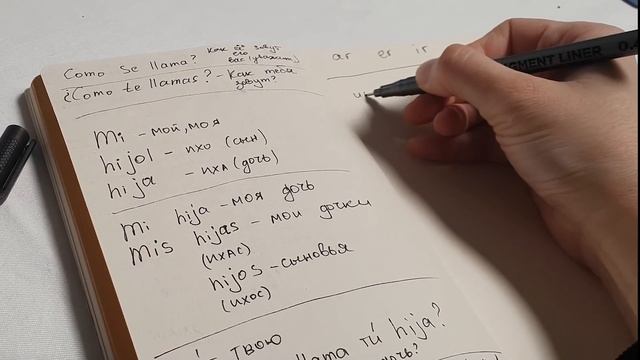 Como Se llama? Как её зовут
его
вас (уважит)
¿Como te llamas? - Как тебя
зовут?
Mi - мой, моя
hijol - ихо (сын)
hija - иха (дочь)
Mi hija - моя дочь
Mis hijas - мои дочки
(ихас)
hijos - сыновья
(ихос)
- твою
llama tú hija?
ar er ir
SEGMENT LINER 0.4